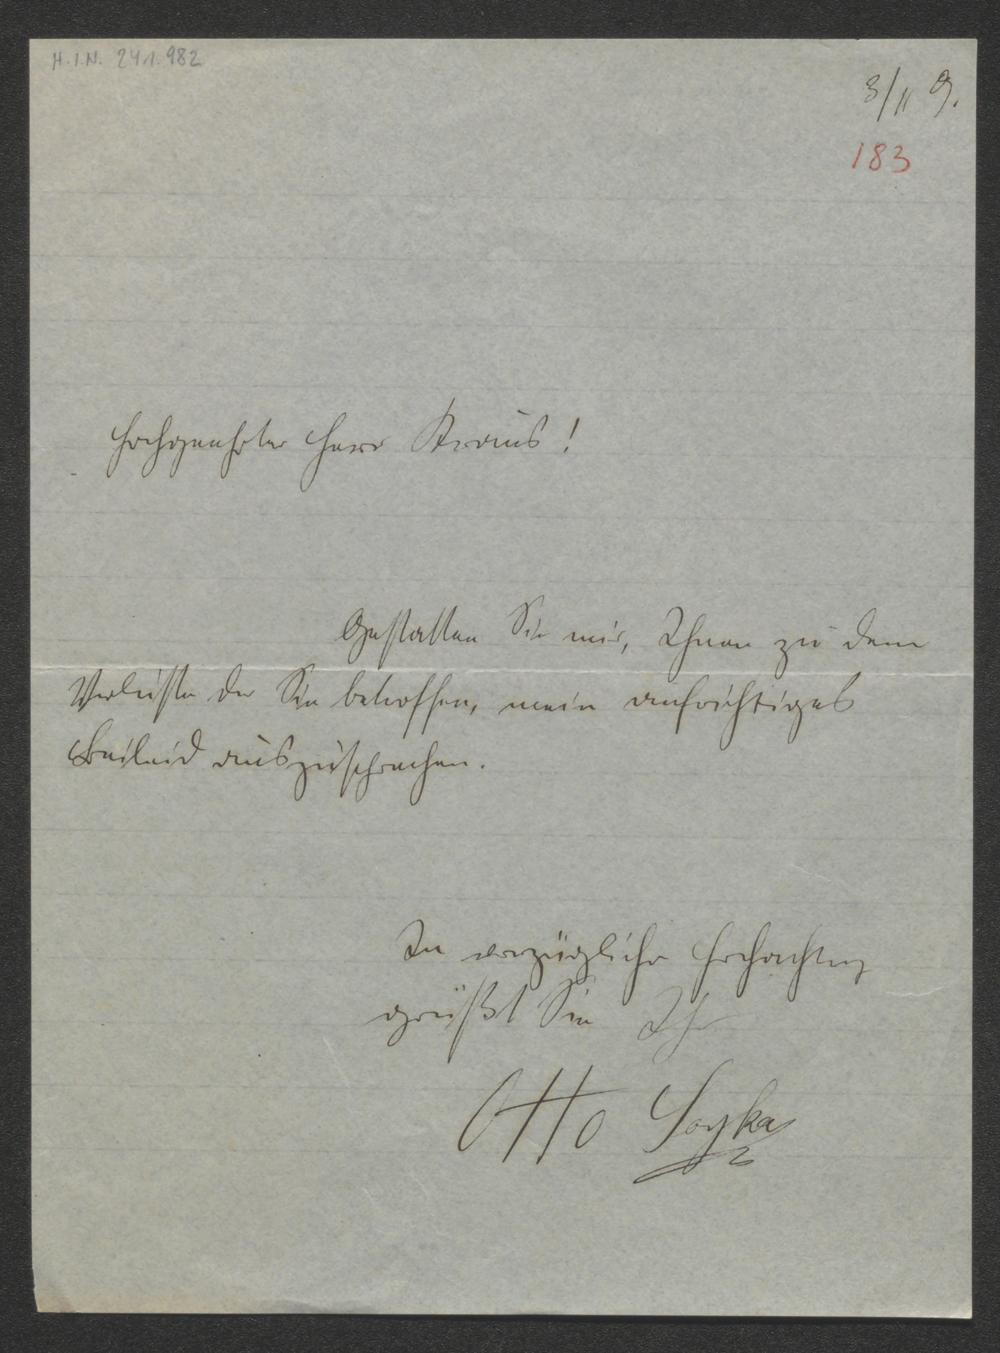 H.I.N. 241.982
8/II 9.
183
Hochgeehrter Herr Kraus!
Gestatten Sie mir, Ihnen zu dem
Verluste der Sie betroffen, mein aufrichtiges
Beileid auszusprechen.
In vorzüglicher Hochachtung
grüßt Sie Ihr
Otto Soyka